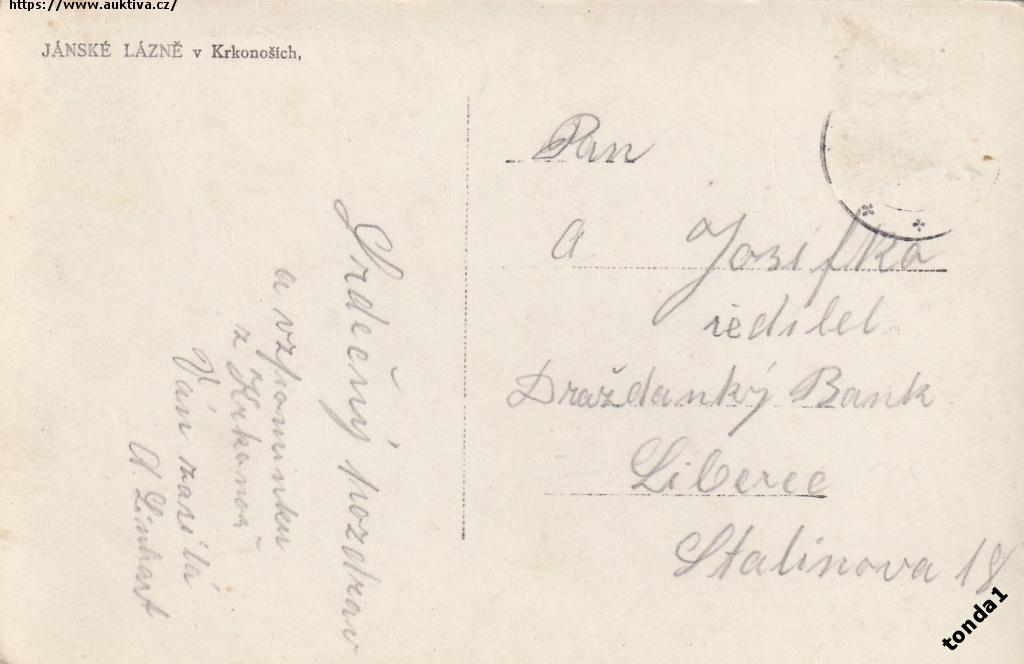 https://www.auktiva.cz/
JÁNSKÉ LÁZNĚ v Krkonoších,
Srdečný pozdrav
a vzpomínku
z Krkonoš
Vám zasílá
A Linhart
Pan
A Josifko
ředitel
Dražďanký Bank
Liberec
Stalinova 18
tonda1